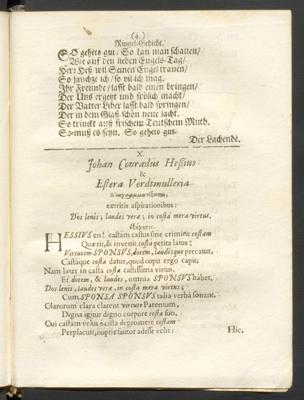 (4.)
Ringel-Gedicht.
SO gehets gut/ So kan man schauen/
Wie auf den lieben Engels-Tag/
Herr Heß wil Seinen Engel trauen/
So jauchze ich/ so vil ich mag.
Ihr Freunde/ lasst bald einen bringen/
Der Uns ergetzt und frölich macht/
Der Vatter Liber lasst bald springen/
Der in dem Glaß schön neue lacht.
So trinckt auß frischem Teutschem Muth.
So muß es seyn. So gehets gut.
Der Lachende.
X.
Johan Conradus Hessius:
&
Estera Verdtmulleria
ἀναγραμματιζόμενοι,
exteritis aspirationibus:
Dos lenis; laudes veræ; in costa mera virtus.
HESSIVS en! castam castus sine crimine costam
Quærit, & invenit costa petita latus:
Virtutem SPONSVS, dotem, laudisque precatur.
Castáque costa datur, quod cupit ergo capit,
Nam latet in casta costa castissima virtus.
Et dotem, & laudes, omnia SPONSVS habet.
Dos lenis, laudes veræ, in costa mera virtus;
Cum SPONSA SPONSVS talia verbâ sonant.
Clarorum clara clarent virtute Parentum,
Digna igitur digno corpore costa suo.
Cui castam velut è costa depromere costam
Perplacuit, nuptiis fautor adesse velit:
Hic,